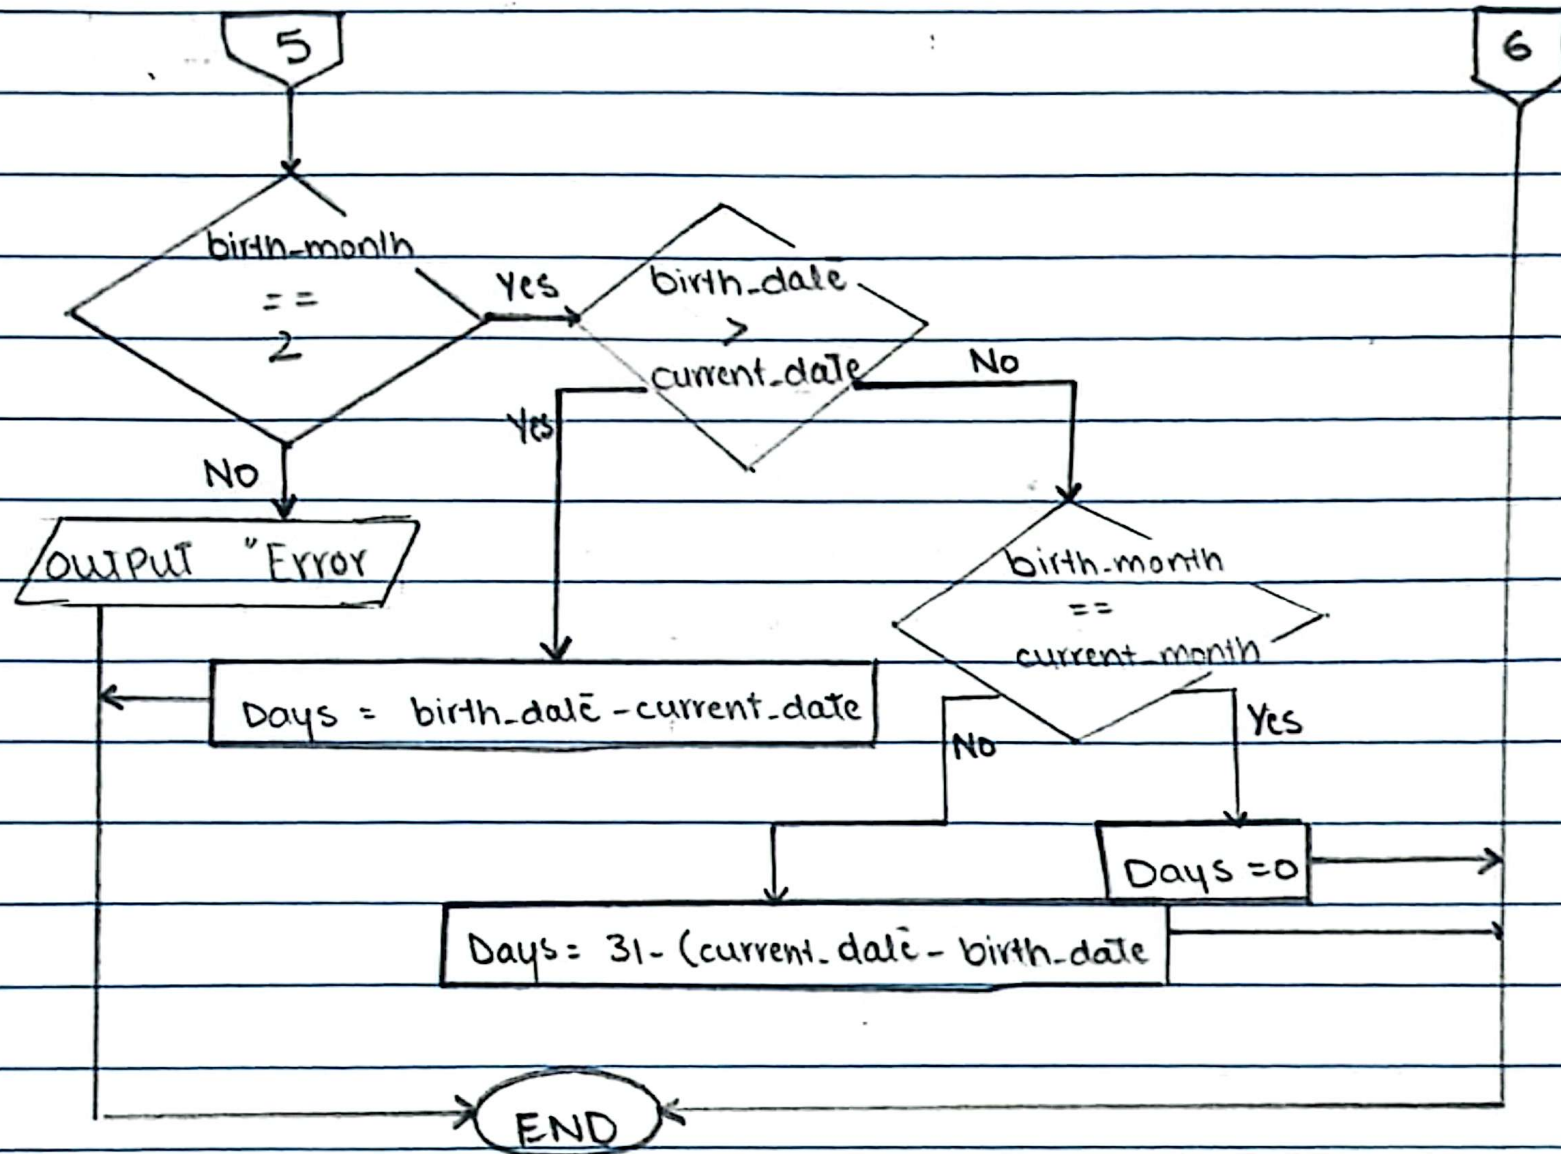 5
6
birth_month
==
2
Yes
birth_date
>
current_date
No
Yes
NO
OUTPUT "Error
birth_month
==
current_month
Days = birth_date - current_date
No
Yes
Days = 0
Days = 31 - (current_date - birth_date
END